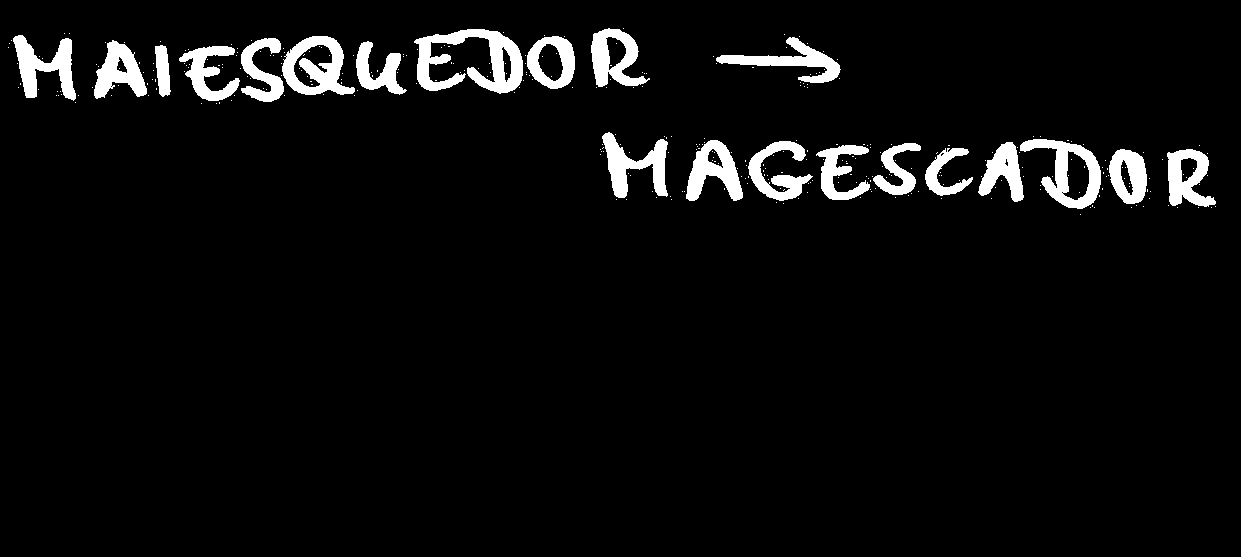 MAIESQUEDOR →
MAGESCADOR